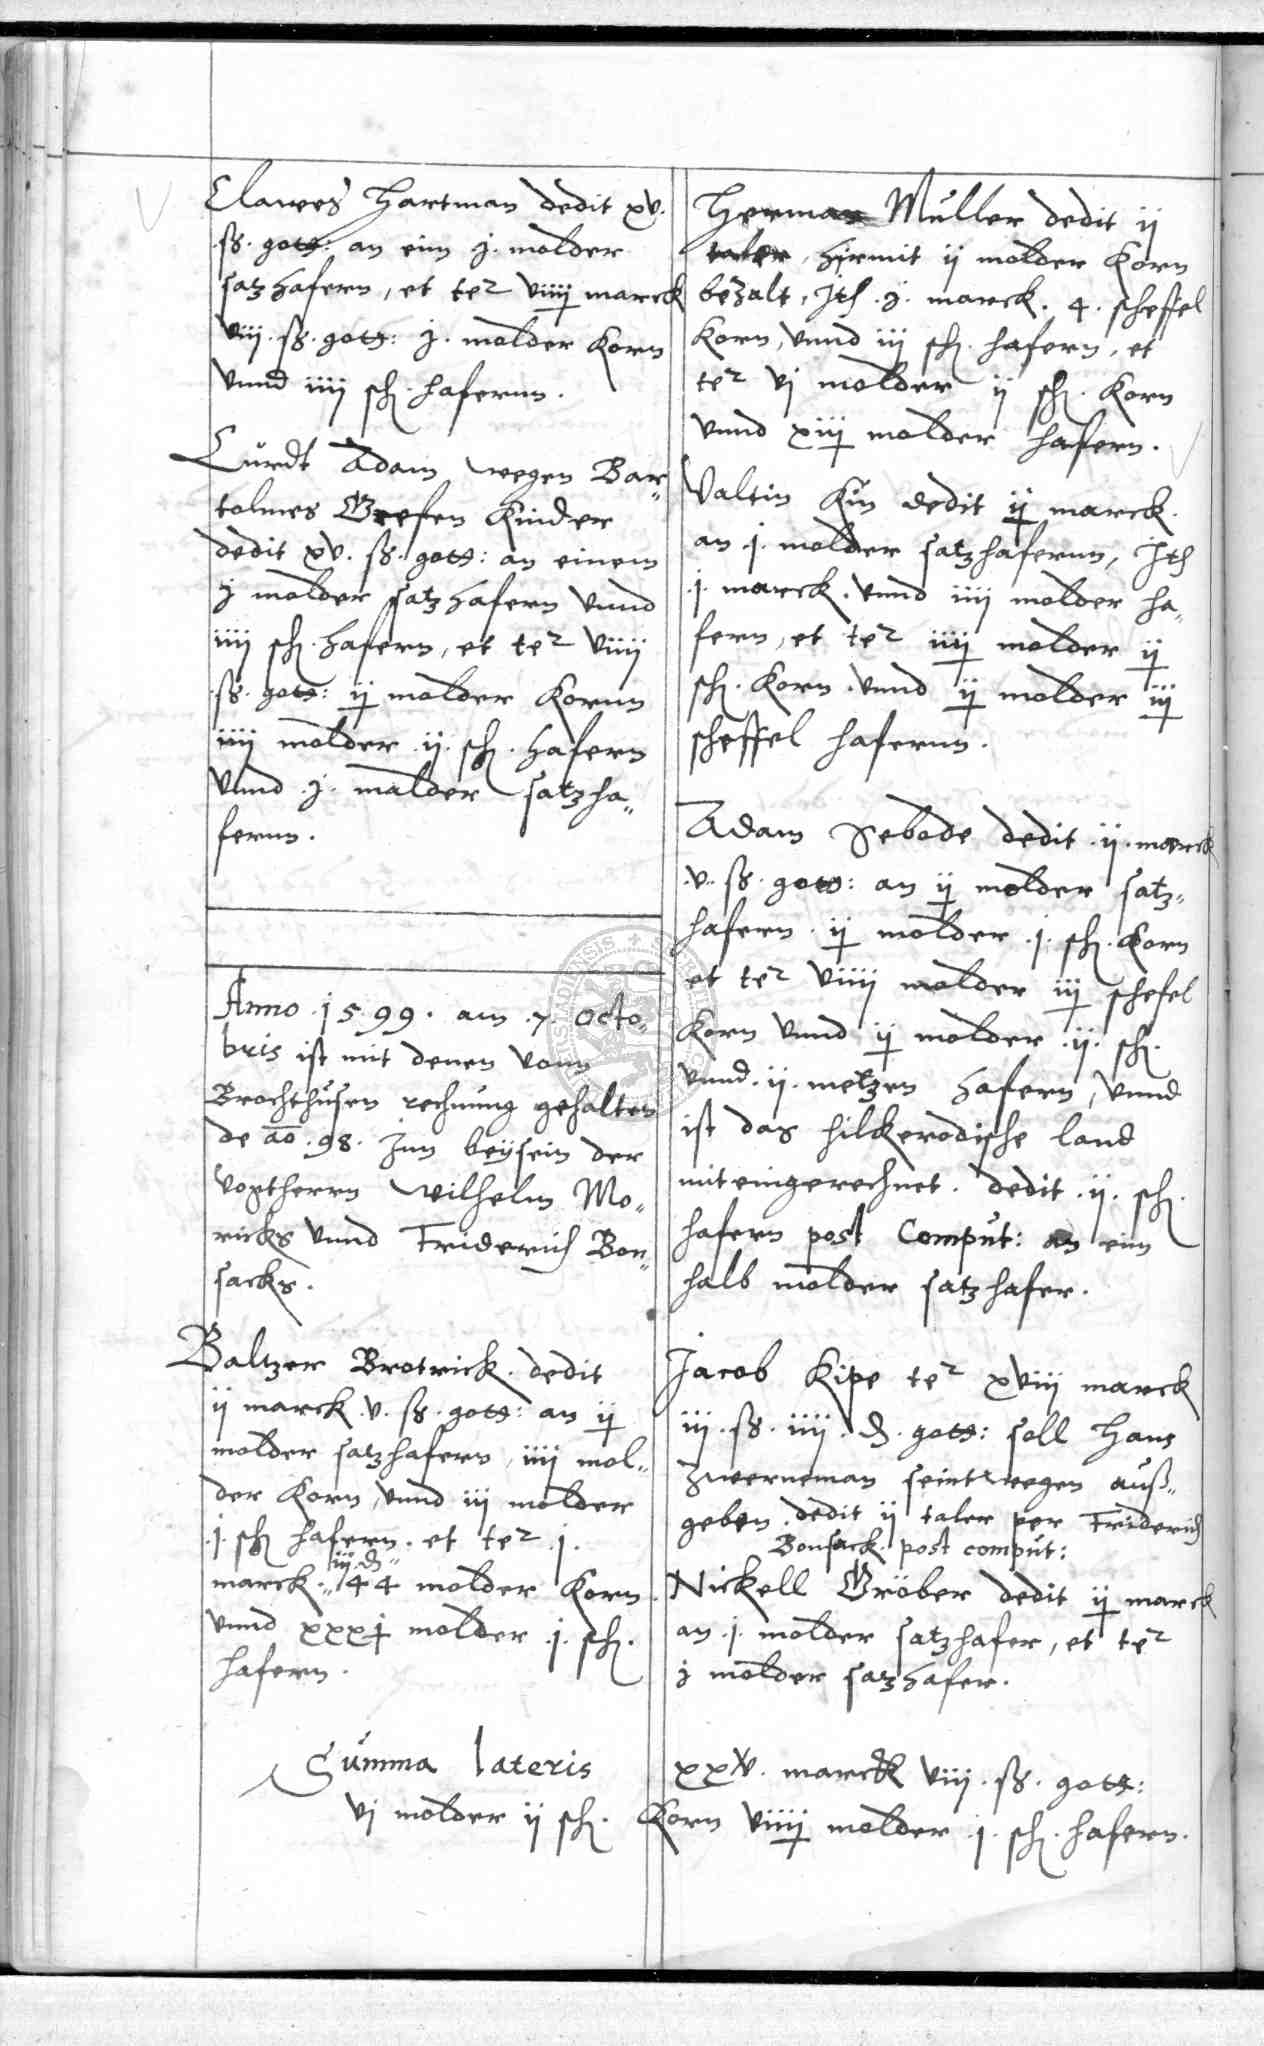 Clawes Hartman dedit xv.
ß. gott: an eim j. molder
satzhafern, et te2 viiij marck
viij. ß. gott: j. molder Korn
vnnd iiij sch. hafernn.
Curdt Adam wegen Bar„
tolmes Grefen Kinder
dedit xv. ß. gott: an einem
j molder satzhafern vnnd
iiij sch. hafern, et te2 viiij
ß. gott: ij molder Kornn
iiij molder ij. sch. hafern
vnnd j. molder satzha„
fernn.
Anno 1599. am 7. Octo„
bris ist mit denen vonn
Brochthusen rechnung gehalten
de ao. 98. Inn beysein der
voptherrn Wilhelm Mo„
ricks vnnd Friderich Bon„
sacks.
Baltzer Brotrick. dedit
ij marck. v. ß. gott: an ij
molder satzhafern, iiij mol„
der Korn, vnnd iij molder
j. sch hafern. et te2 j.
iij. d
marck. 44 molder Korn
vnnd xxxj molder j. sch.
hafern.
Herman Müller dedit ij
taler, hirmit ij molder Korn
bezalt, Ith. j. marck. 4. scheffel
Korn, vnnd iij sch. hafern, et
te2 vj molder ij sch. Korn
vnnd xiij molder hafern.
Valtin Kün dedit ij marck.
an j. molder satzhafernn, Ith
j. marck. vnnd iiij molder ha„
fern, et te2 iiij molder ij
sch. Korn. vnnd ij molder iij
scheffel hafernn.
Adam Sebode dedit ij. marck
v. ß. gott: an ij molder satz„
hafern. ij molder j. sch. Korn
et te2 viiij molder iij schefel
Korn vnnd ij molder ij. sch.
vnnd ij. metzen hafern, vnnd
ist das hilkerodische land
mit eingerechnet. dedit ij. sch.
hafern post Comput: an eim
halb molder satzhafer.
Jacob Kipe te2 xviij marck
iij. ß. iiij. d. gott: soll Hans
Zwerneman seint wegen auß„
geben. dedit ij taler per Friderich
Bonsack. post comput:
Nickell Gröber dedit ij marck
an j. molder satzhafer, et te2
j molder satzhafer.
Summa lateris xxv. marck viij. ß. gott:
vj molder ij sch. Korn viiij molder j. sch. hafern.